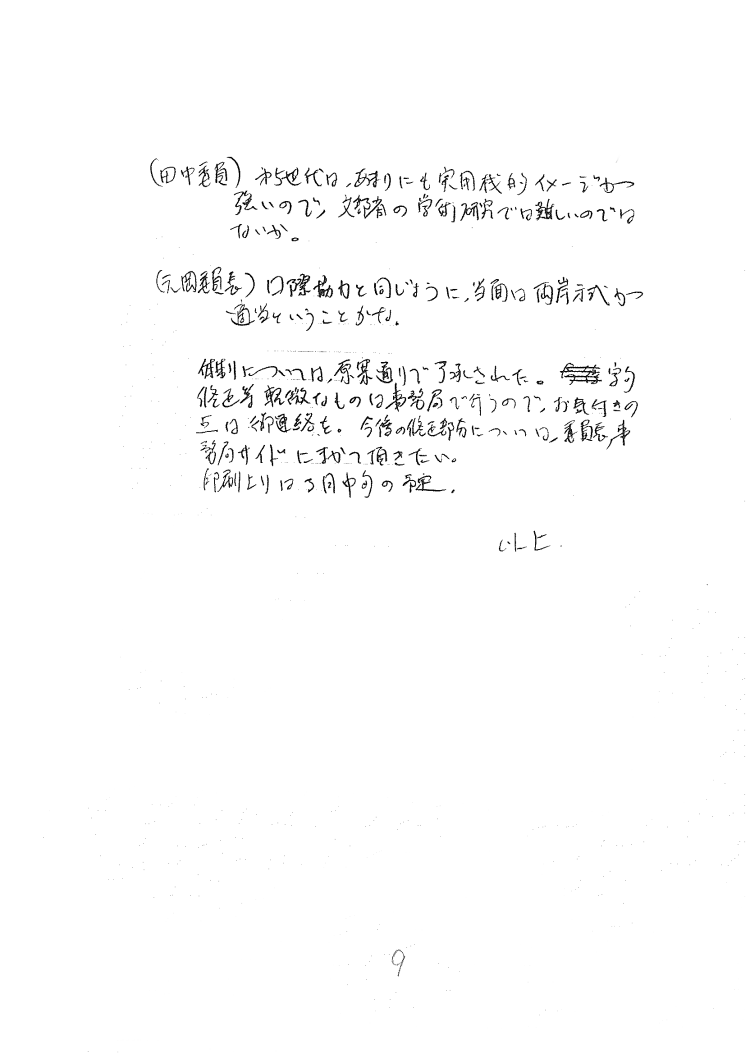 (田中委員) 才5世代は、あまりにも実用機的イメージが
強いので、文部省の学術研究では難しいのでは
ないか。
(元岡委員長) 口際協力と同じように、当面は両岸方式が
適当ということかな。
体制については、原案通りで了承された。 字句
修正等軽微なものは事務局で行うので、お気付きの
点は御連絡を。今後の修正部分については、委員長、事
務局サイドにまかて頂きたい。
印刷上りは3月中旬の予定。
以上.
9